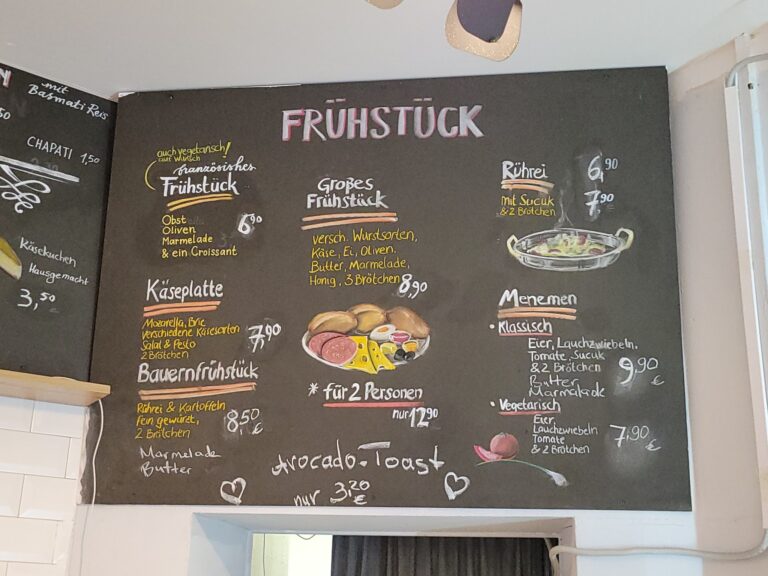 mit
Basmati Reis
50
CHAPATI 1,50
Käsekuchen
Hausgemacht
3,50
FRÜHSTÜCK
auch vegetarisch!
französisches
Frühstück
Obst
Oliven
Marmelade
& ein Croissant
6,90
Käseplatte
Mozarella, Brie
verschiedene Käsesorten
Salat & Pesto
2 Brötchen
7,90
Bauernfrühstück
Rührei & Kartoffeln
fein gewürzt,
2 Brötchen
8,50
€
Marmelade
Butter
Großes
Frühstück
versch. Wurstsorten,
Käse, Ei, Oliven.
Butter, Marmelade,
Honig, 3 Brötchen
8,90
* für 2 Personen
nur 12,90
Avocado-Toast
nur 3,20
€
Rührei 6,90
mit Sucuk
& 2 Brötchen
7,90
Menemen
• Klassisch
Eier, Lauchzwiebeln.
Tomate, Sucuk
& 2 Brötchen
Butter
Marmelade
9,90
€
• Vegetarisch
Eier,
Lauchzwiebeln
Tomate
& 2 Brötchen
7,90
€